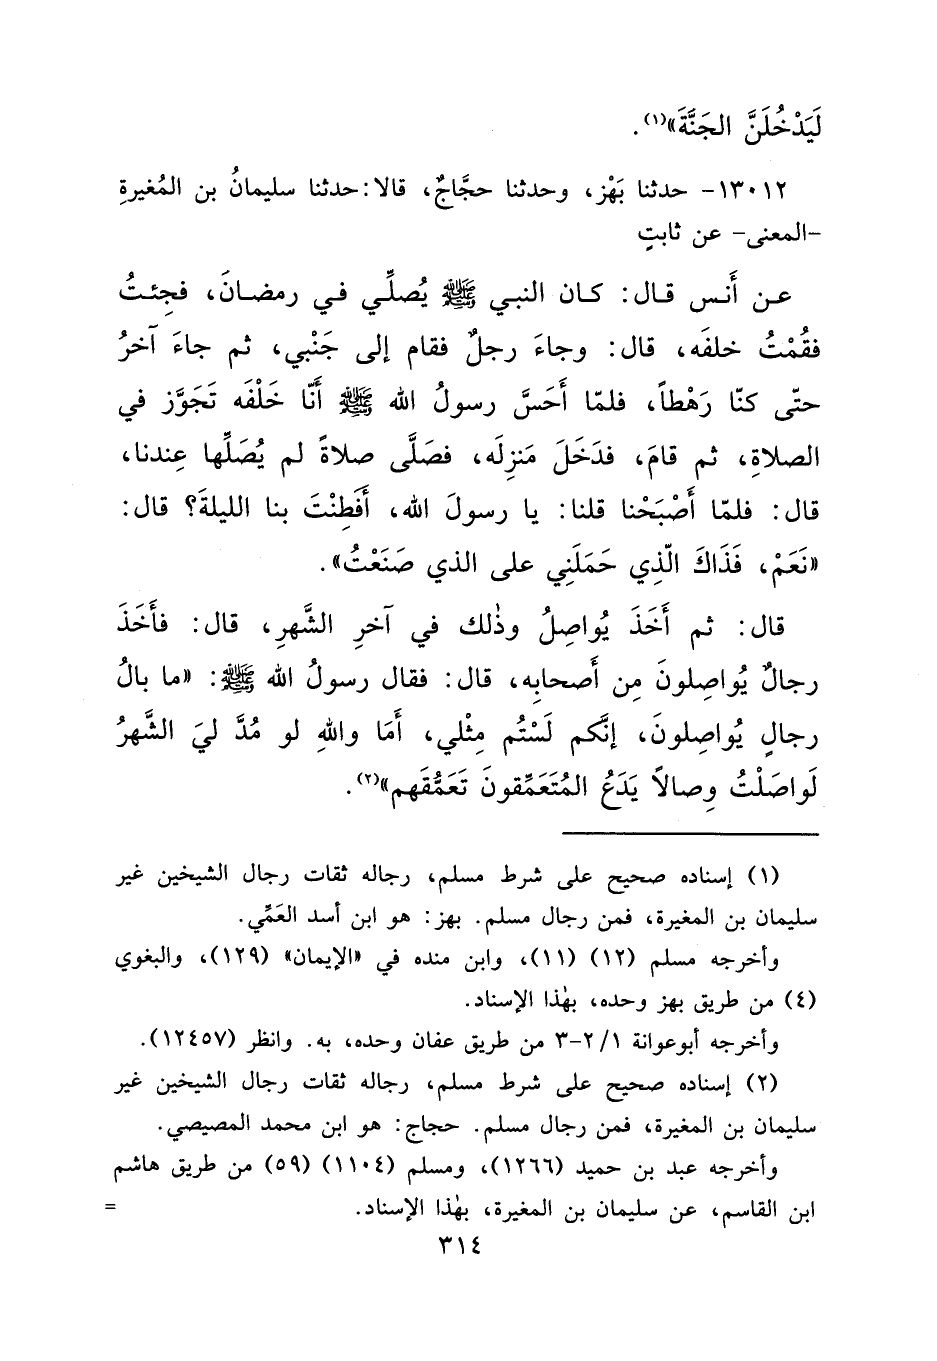 لَيَدْخُلَنَّ الجَنَّةَ»(١).
١٣٠١٢- حدثنا بَهْز، وحدثنا حجَّاجٌ، قالا: حدثنا سليمانُ بن المُغيرةِ
-المعنى- عن ثابتٍ
عن أَنس قال: كان النبي ﷺ يُصلِّي في رمضانَ، فجِئتُ
فقُمْتُ خلفَه، قال: وجاءَ رجلٌ فقام إلى جَنْبي، ثم جاءَ آخرُ
حتّى كنّا رَهْطاً، فلمّا أَحَسَّ رسولُ الله ﷺ أَنّا خَلْفَه تَجَوَّز في
الصلاةِ، ثم قامَ، فدَخَلَ مَنزِلَه، فصَلَّى صلاةً لم يُصَلِّها عِندنا،
قال: فلمّا أَصْبَحْنا قلنا: يا رسولَ الله، أَفَطِنْتَ بنا الليلةَ؟ قال:
«نَعَمْ، فَذَاكَ الّذِي حَمَلَنِي على الذي صَنَعْتُ».
قال: ثم أَخَذَ يُواصِلُ وذٰلك في آخرِ الشَّهرِ، قال: فأَخَذَ
رجالٌ يُواصِلونَ مِن أَصحابِه، قال: فقال رسولُ الله ﷺ: «ما بالُ
رجالٍ يُواصِلونَ، إنَّكم لَسْتُم مِثْلي، أَمَا واللهِ لو مُدَّ ليَ الشَّهرُ
لَواصَلْتُ وِصالاً يَدَعُ المُتَعَمِّقونَ تَعَمُّقَهم»(٢).
(١) إسناده صحيح على شرط مسلم، رجاله ثقات رجال الشيخين غير
سليمان بن المغيرة، فمن رجال مسلم. بهز: هو ابن أسد العَمِّي.
وأخرجه مسلم (١٢) (١١)، وابن منده في «الإيمان» (١٢٩)، والبغوي
(٤) من طريق بهز وحده، بهٰذا الإسناد.
وأخرجه أبوعوانة ١/ ٢-٣ من طريق عفان وحده، به. وانظر (١٢٤٥٧).
(٢) إسناده صحيح على شرط مسلم، رجاله ثقات رجال الشيخين غير
سليمان بن المغيرة، فمن رجال مسلم. حجاج: هو ابن محمد المصيصي.
وأخرجه عبد بن حميد (١٢٦٦)، ومسلم (١١٠٤) (٥٩) من طريق هاشم
ابن القاسم، عن سليمان بن المغيرة، بهٰذا الإسناد. =
٣١٤